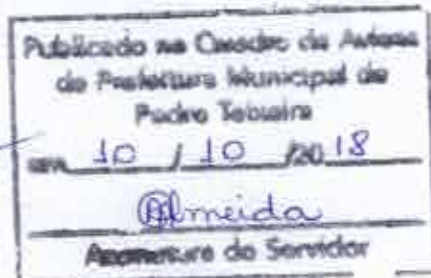 Publicado no Quadro de Avisos
da Prefeitura Municipal de
Pedro Teixeira
em 10 / 10 /2018
Almeida
Assinatura do Servidor